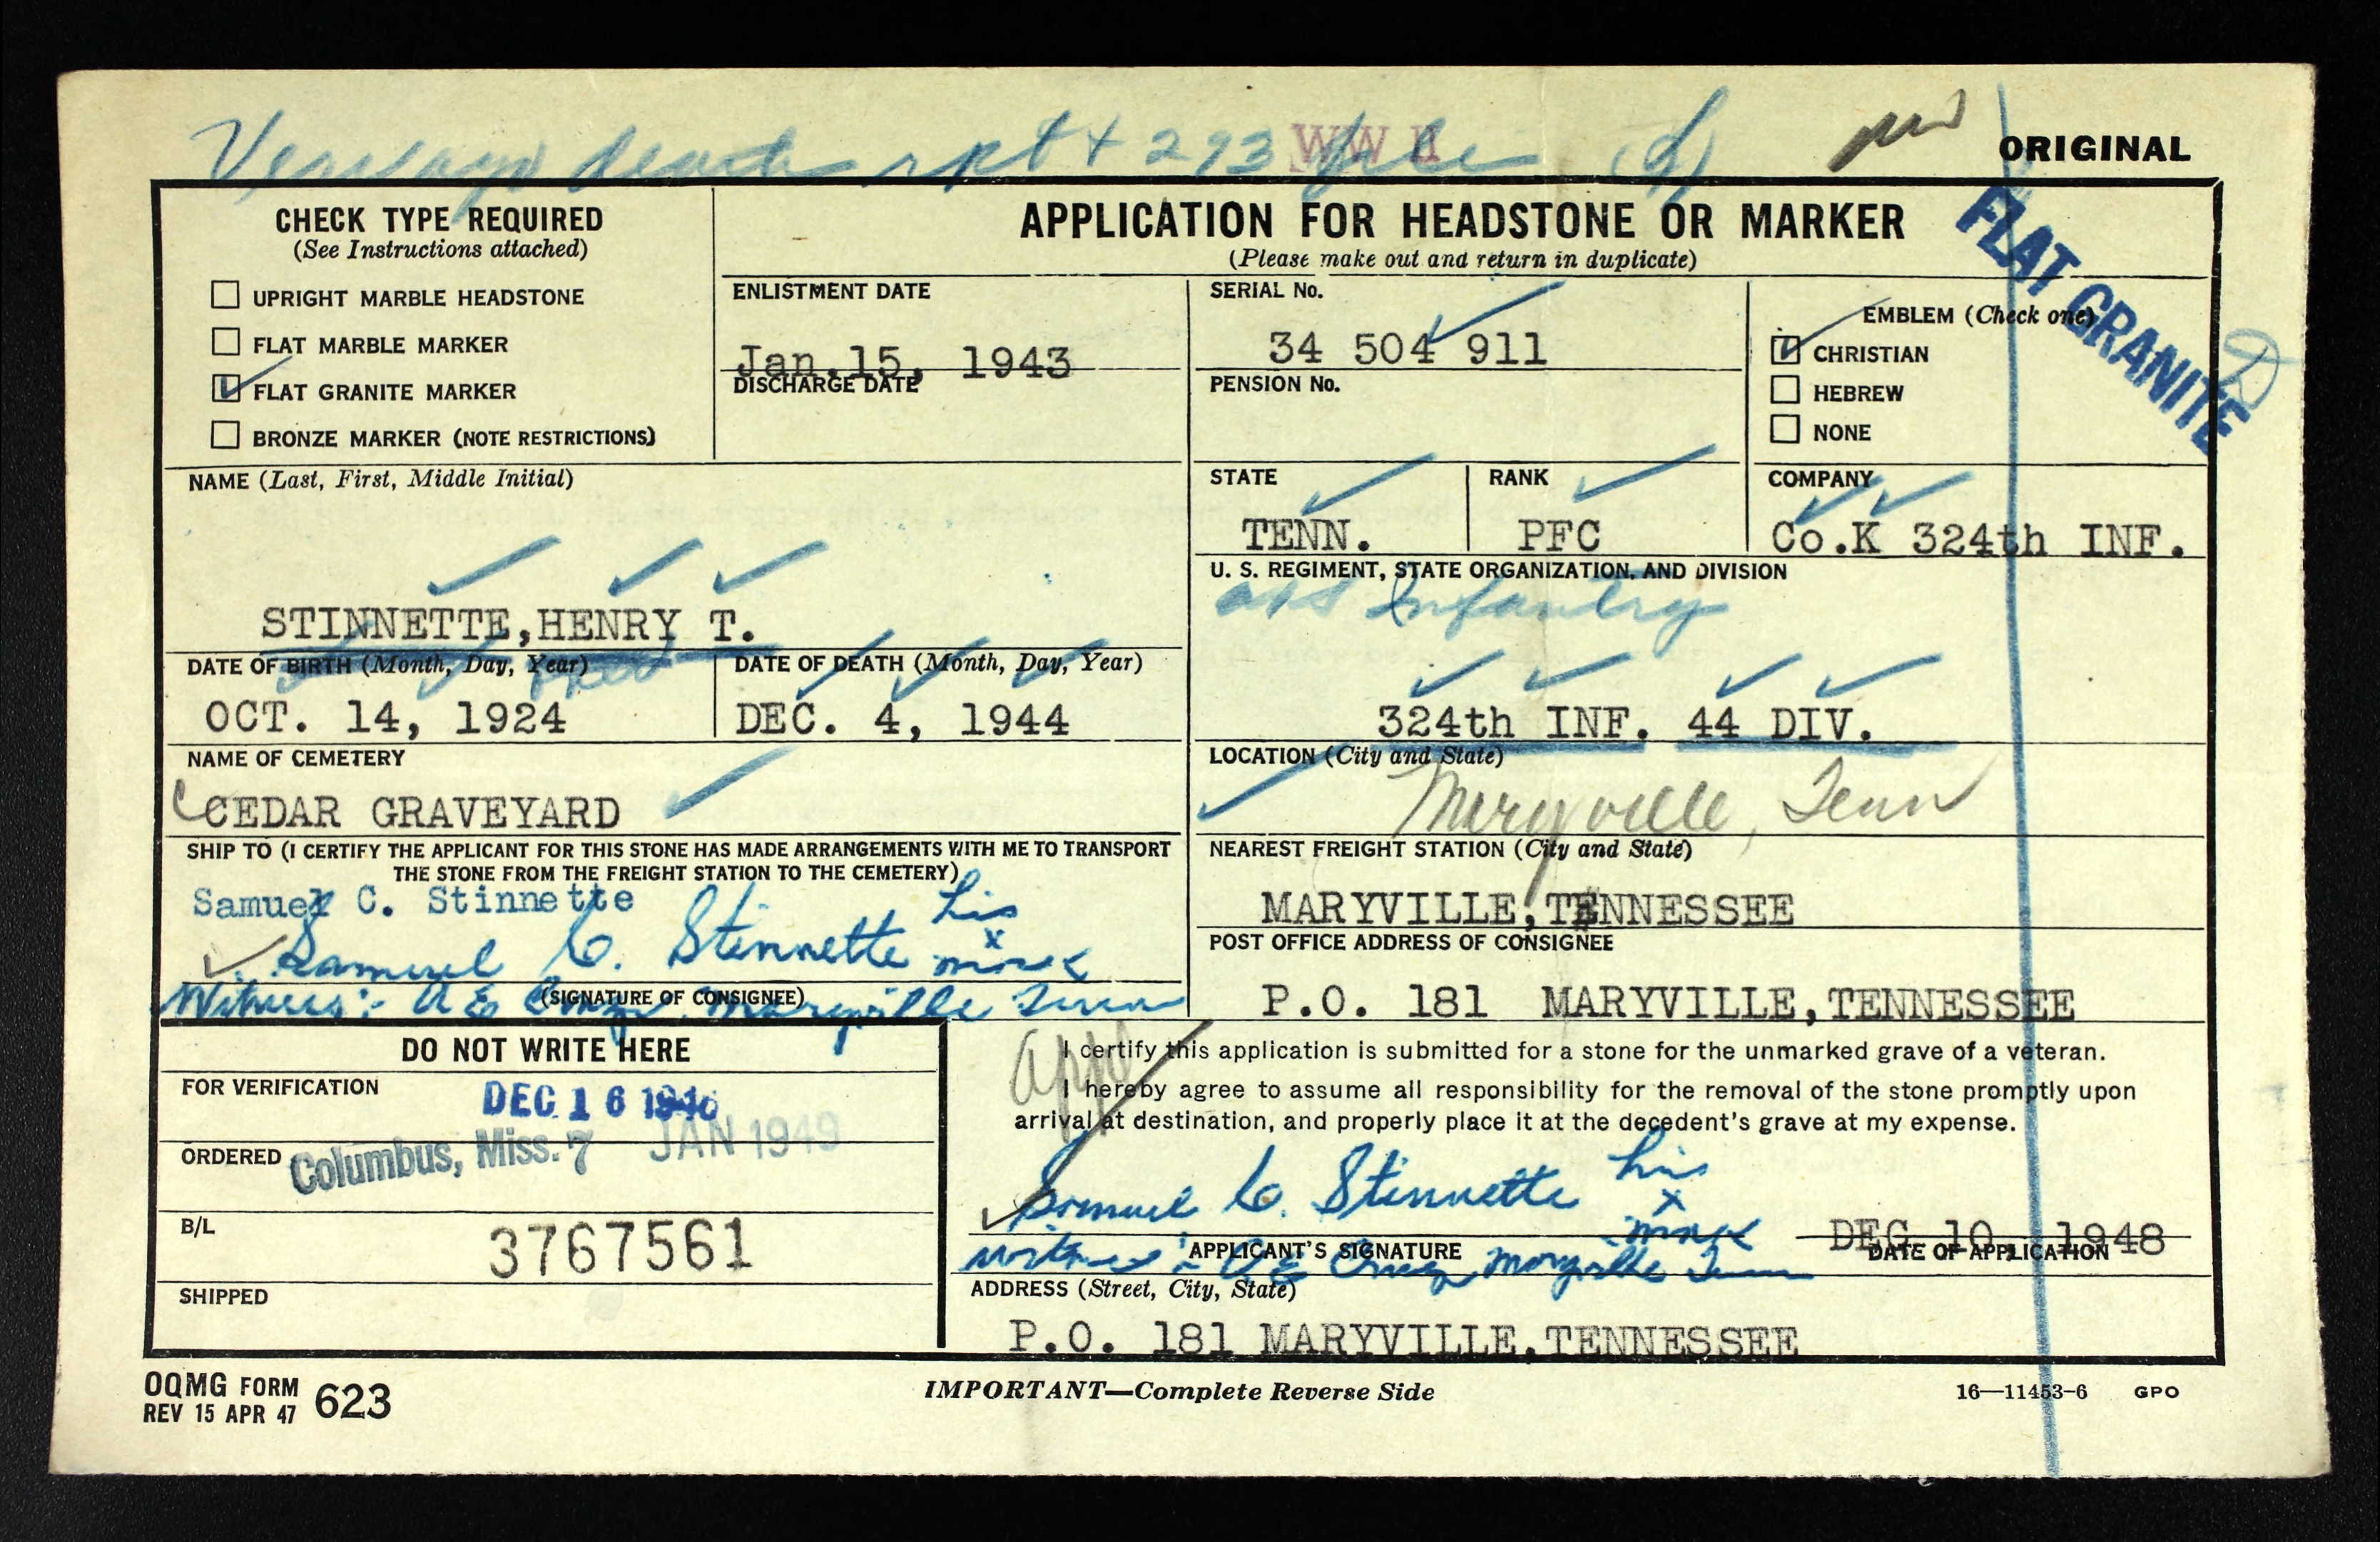 rpt + 293 file
WW II
ORIGINAL
FLAT GRANITE
CHECK TYPE REQUIRED
(See Instructions attached)
UPRIGHT MARBLE HEADSTONE
FLAT MARBLE MARKER
FLAT GRANITE MARKER
BRONZE MARKER (NOTE RESTRICTIONS)
APPLICATION FOR HEADSTONE OR MARKER
(Please make out and return in duplicate)
ENLISTMENT DATE
Jan.15, 1943
DISCHARGE DATE
SERIAL No.
34 504 911
PENSION No.
EMBLEM (Check one)
CHRISTIAN
HEBREW
NONE
NAME (Last, First, Middle Initial)
STINNETTE,HENRY T.
STATE
TENN.
RANK
PFC
COMPANY
Co.K 324th INF.
U. S. REGIMENT, STATE ORGANIZATION, AND DIVISION
Infantry
324th INF. 44 DIV.
DATE OF BIRTH (Month, Day, Year)
OCT. 14, 1924
DATE OF DEATH (Month, Day, Year)
DEC. 4, 1944
NAME OF CEMETERY
CEDAR GRAVEYARD
LOCATION (City and State)
Maryville, Tenn
SHIP TO (I CERTIFY THE APPLICANT FOR THIS STONE HAS MADE ARRANGEMENTS WITH ME TO TRANSPORT
THE STONE FROM THE FREIGHT STATION TO THE CEMETERY)
Samuel C. Stinnette
Samuel C. Stinnette his
x
mark
(SIGNATURE OF CONSIGNEE)
Witness:- A E Maryville Tenn
NEAREST FREIGHT STATION (City and State)
MARYVILLE,TENNESSEE
POST OFFICE ADDRESS OF CONSIGNEE
P.O. 181 MARYVILLE,TENNESSEE
DO NOT WRITE HERE
FOR VERIFICATION
DEC 16
ORDERED
Columbus, Miss. 7 JAN 1949
B/L
3767561
SHIPPED
I certify this application is submitted for a stone for the unmarked grave of a veteran.
I hereby agree to assume all responsibility for the removal of the stone promptly upon
arrival at destination, and properly place it at the decedent's grave at my expense.
Samuel C. Stinnette his
x
mark
DEC 10, 1948
APPLICANT'S SIGNATURE
DATE OF APPLICATION
Witness:- A E Maryville Tenn
ADDRESS (Street, City, State)
P.O. 181 MARYVILLE,TENNESSEE
OQMG FORM 623
REV 15 APR 47
IMPORTANT—Complete Reverse Side
16—11453-6 GPO